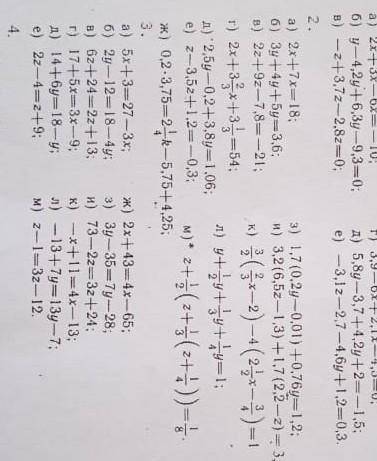 а) 2x+3x-6x=-10;
б) y-4,2y+6,3y-9,3=0;
в) -z+3,7z-2,8z=0;
д) 5,8y-3,7+4,2y+2=-1,5;
е) -3,1z-2,7-4,6y+1,2=0,3.
2.
а) 2x+7x=18;
б) 3y+4y+5y=3,6;
в) 2z+9z-7,8=-21;
г) 2x+3 2/3 x+3 1/3=54;
д) 2,5y-0,2+3,8y=1,06;
е) z-3,5z+1,2=-0,3;
ж) 0,2·3,75=2 1/4 k-5,75+4,25;
з) 1,7(0,2y-0,01)+0,76y=1,2;
и) 3,2(6,5z-1,3)+1,7(2,2-z)=3,
к) 3/2(2/3 x-2)-4(2 1/2 x-3/4)=1
л) y+1/2 y+1/3 y+1/4 y=1;
м)* z+1/2(z+1/3(z+1/4))=1/8.
3.
а) 5x+3=27-3x;
б) 2y-12=18-4y;
в) 6z+24=2z+13;
г) 17+5x=3x-9;
д) 14+6y=18-y;
е) 2z-4=z+9;
ж) 2x+43=4x-65;
з) 3y-35=7y-28;
и) 73-2z=3z+24;
к) -x+11=4x-13;
л) -13+7y=13y-7;
м) z-1=3z-12.
4.